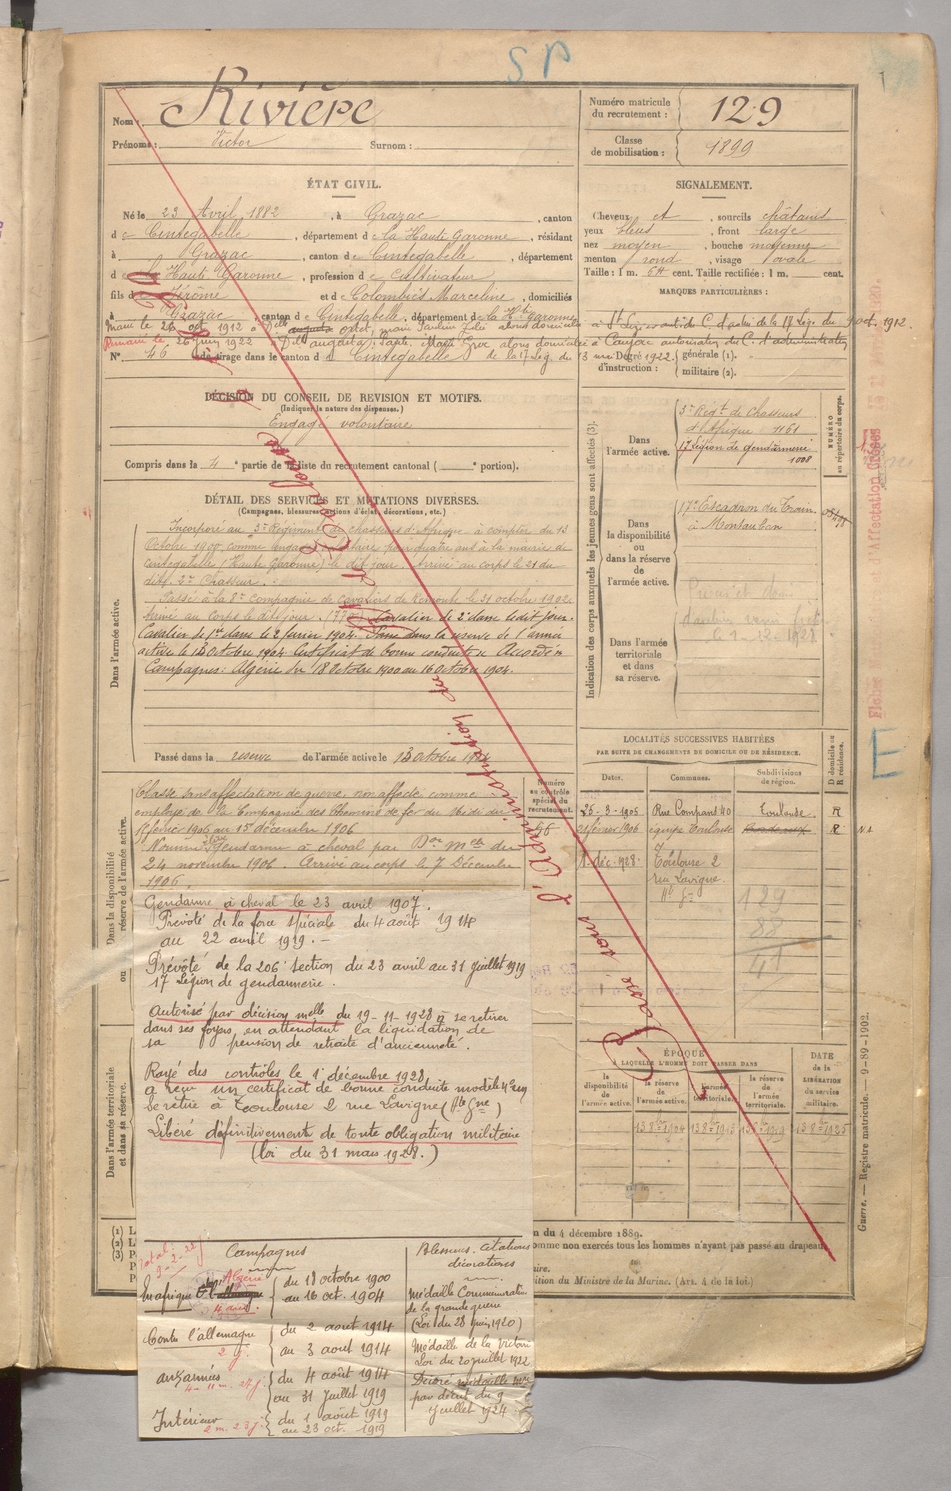 SP
Nom : Rivière
Prénoms : Victor Surnom :
Numéro matricule du recrutement : 129
Classe de mobilisation : 1899
ÉTAT CIVIL.
Né le 23 Avril 1882, à Grazac, canton
de Cintegabelle, département de la Haute Garonne, résidant
à Grazac, canton de Cintegabelle, département
de la Haute Garonne, profession de Cultivateur
fils de Jérôme et de Colombiès Marceline, domiciliés
à Grazac, canton de Cintegabelle, département de la Hte Garonne
Marié le oct 1912 à Delle
Remarié le 26 juin 1922
N° 46 de tirage dans le canton de Cintegabelle
SIGNALEMENT.
Cheveux et, sourcils châtains
yeux bleus, front large
nez moyen, bouche moyenne
menton rond, visage ovale
Taille : 1 m. 64 cent. Taille rectifiée : 1 m. cent.
MARQUES PARTICULIÈRES :
d'instruction : générale (1).
militaire (2).
DÉCISION DU CONSEIL DE REVISION ET MOTIFS.
(Indiquer la nature des dispenses.)
Engagé volontaire
Compris dans la 4e partie de la liste du recrutement cantonal ( e portion).
DÉTAIL DES SERVICES ET MUTATIONS DIVERSES.
(Campagnes, blessures, actions d'éclat, décorations, etc.)
Dans l'armée active.
Incorporé au 3e Régiment de chasseurs d'Afrique à compter du 13
Octobre 1900 comme engagé volontaire pour quatre ans à la mairie de
Cintegabelle (Haute Garonne) le dit jour. Arrivé au corps le 21 du
dit. 2e Chasseur.
Passé à la 8e Compagnie de Cavaliers de Remonte le 31 octobre 1902.
Arrivé au corps le dit jour. Cavalier de 2e classe le dit jour.
Cavalier de 1re classe le 2 février 1904. Passé dans la réserve de l'armée
active le 13 Octobre 1904. Certificat de bonne conduite "Accordé"
Campagnes: Algérie du 18 Octobre 1900 au 16 Octobre 1904.
Passé dans la réserve de l'armée active le 13 octobre 1904
Indication des corps auxquels les jeunes gens sont affectés (3).
NUMÉRO au répertoire du corps.
Dans l'armée active.
3e Régt de Chasseurs
d'Afrique 1161
17 Légion de gendarmerie
1008
Dans la disponibilité ou dans la réserve de l'armée active.
17e Escadron du Train
à Montauban
Dans l'armée territoriale et dans sa réserve.
LOCALITÉS SUCCESSIVES HABITÉES
PAR SUITE DE CHANGEMENTS DE DOMICILE OU DE RÉSIDENCE.
Dates. Communes. Subdivisions de région. D domicile ou R résidence.
25-3-1905 Rue Compans 40 Toulouse R
21 février 1906 équipe Toulouse R
1 déc. 1928. Toulouse 2 rue Lavigne Hte Gne
129
88
41
Dans la disponibilité ou réserve de l'armée active.
Numéro au contrôle spécial du recrutement.
Classé sans affectation de guerre, non affecté comme
employé de la Compagnie des Chemins de fer du Midi du
février 1906 au 15 décembre 1906
Nommé Gendarme à cheval par Don Melle du
24 novembre 1906. Arrivé au corps le 7 Décembre
1906.
Gendarme à cheval le 23 avril 1907.
Prévôté de la force spéciale du 4 août 1914
au 22 avril 1919.-
Prévôté de la 206e section du 23 avril au 31 juillet 1919
17 Légion de gendarmerie.
Autorisé par décision melle du 19-11-1928 à se retirer
dans ses foyers, en attendant la liquidation de
sa pension de retraite d'ancienneté.
Rayé des contrôles le 1er décembre 1928
a reçu un certificat de bonne conduite modèle
Se retire à Toulouse 2 rue Lavigne (Hte Gne)
Libéré définitivement de toute obligation militaire
(loi du 31 mars 1928.)
Dans l'armée territoriale et dans sa réserve.
ÉPOQUE
À LAQUELLE L'HOMME DOIT PASSER DANS
la disponibilité de l'armée active. la réserve de l'armée active. l'armée territoriale. la réserve de l'armée territoriale.
DATE de la LIBÉRATION du service militaire.
13 8bre 1904 13 8bre 1919 13 8bre 1925
n du 4 décembre 1889.
omme non exercés tous les hommes n'ayant pas passé au drapeau
ition du Ministre de la Marine. (Art. 4 de la loi.)
Guerre. — Registre matricule. — 9-89-1902.
Campagnes
Blessures. Citations décorations
Total:
En afrique Algérie 4 ans
du 18 octobre 1900
au 16 oct. 1904
Contre l'allemagne 2 j.
du 2 aout 1914
au 3 aout 1914
aux armées 4-11 m. 27 j.
du 4 août 1914
au 31 juillet 1919
Intérieur 2 m. 23 j.
du 1 août 1919
au 23 oct. 1919
Médaille Commémorative
de la grande guerre
(Loi du 23 juin 1920)
Médaille de la Victoire
Loi du 20 juillet 1922
Décoré médaille mre
par décret du 9
juillet 1924.
Classé sous l'Administration du